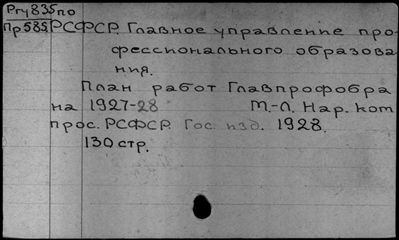 Ргу835по
Пр585 РСФСР. Главное управление про-
фессионального образова-
ния.
План работ Главпрофобра
на 1927-28 М.-Л. Нар. ком
прос. РСФСР. Гос. изд. 1928.
130 стр.